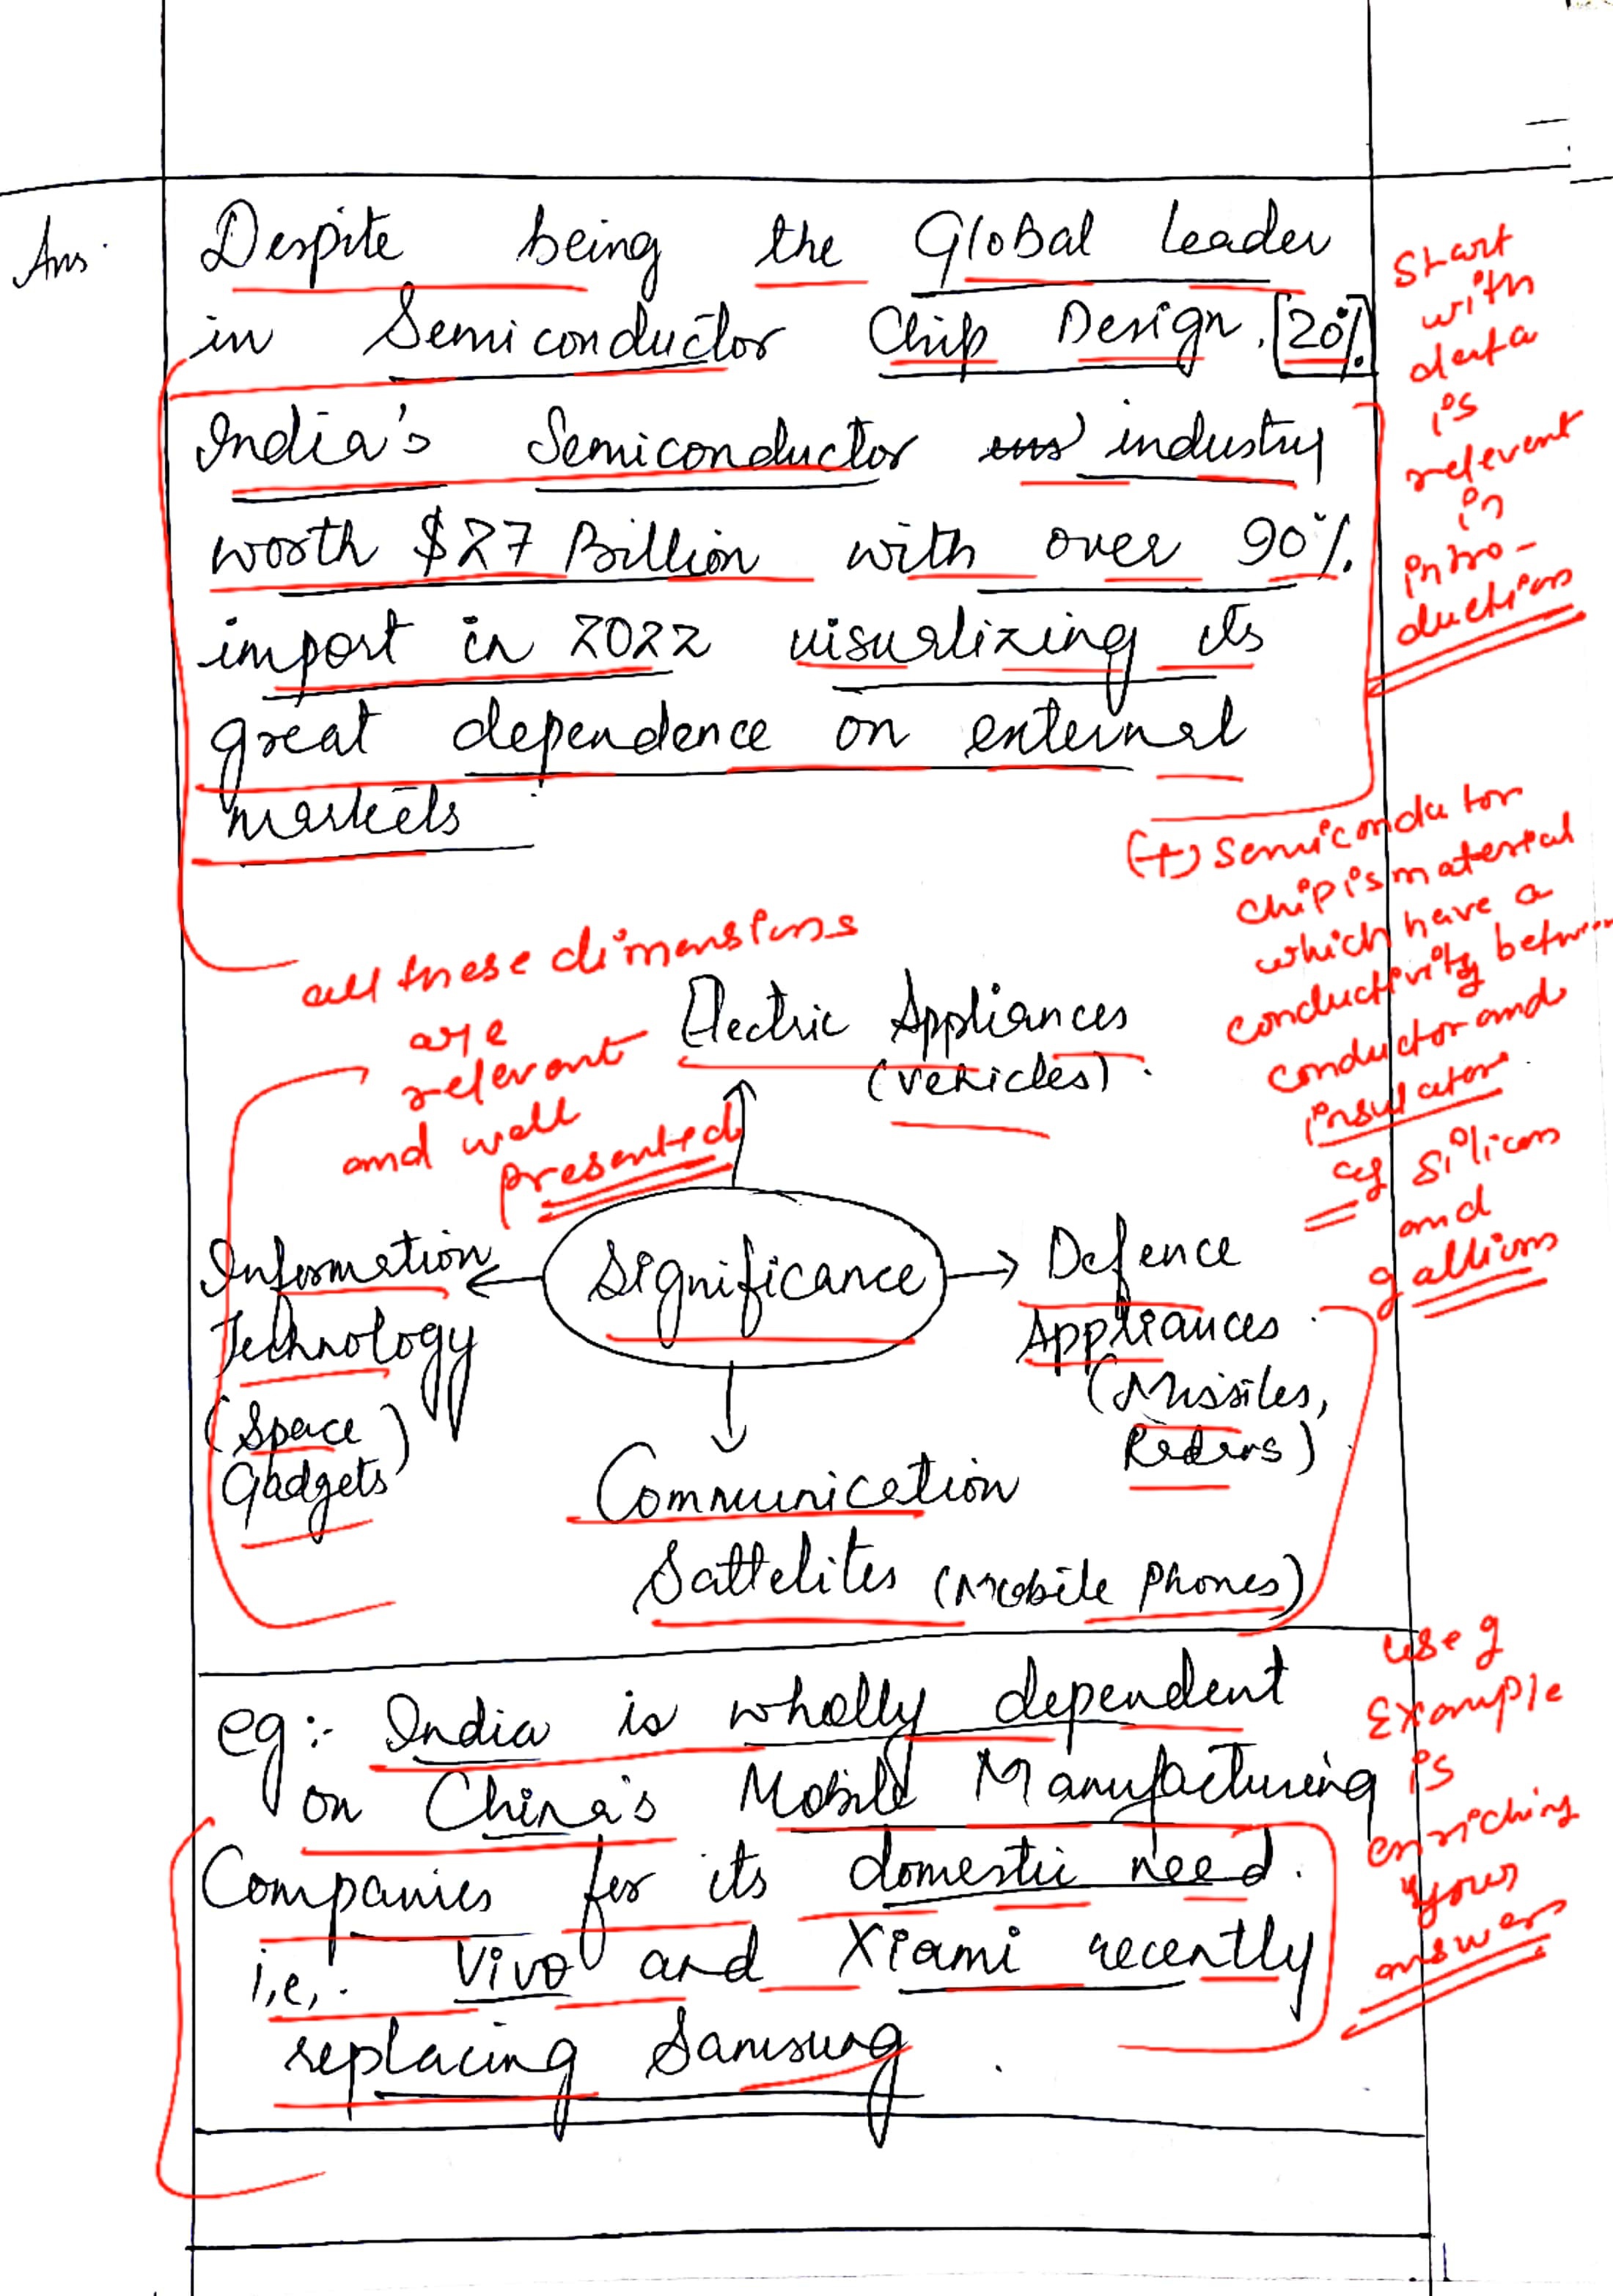 Ans.
Despite being the Global leader
in Semiconductor Chip Design. [20%]
India's Semiconductor ins industry
worth $27 Billion with over 90%
import in 2022 visualizing its
great dependence on external
markets
Start
with
data
is
relevent
in
intro-
duction
(+) Semiconductor
chip is material
which have a
conductivity between
conductor and
insulator
eg Silicon
and
gallium
all these dimensions
are
relevant
and well
presented
Electric Appliances
(Vehicles).
Significance
Information
Technology
(Space
Gadgets)
Defence
Appliances
(Missiles,
Radars)
Communication
Sattelites (Mobile Phones)
eg:- India is wholly dependent
on China's Mobile Manufacturing
Companies for its domestic need.
i,e,. Vivo and Xiami recently
replacing Samsung.
use g
Example
is
enriching
your
answer